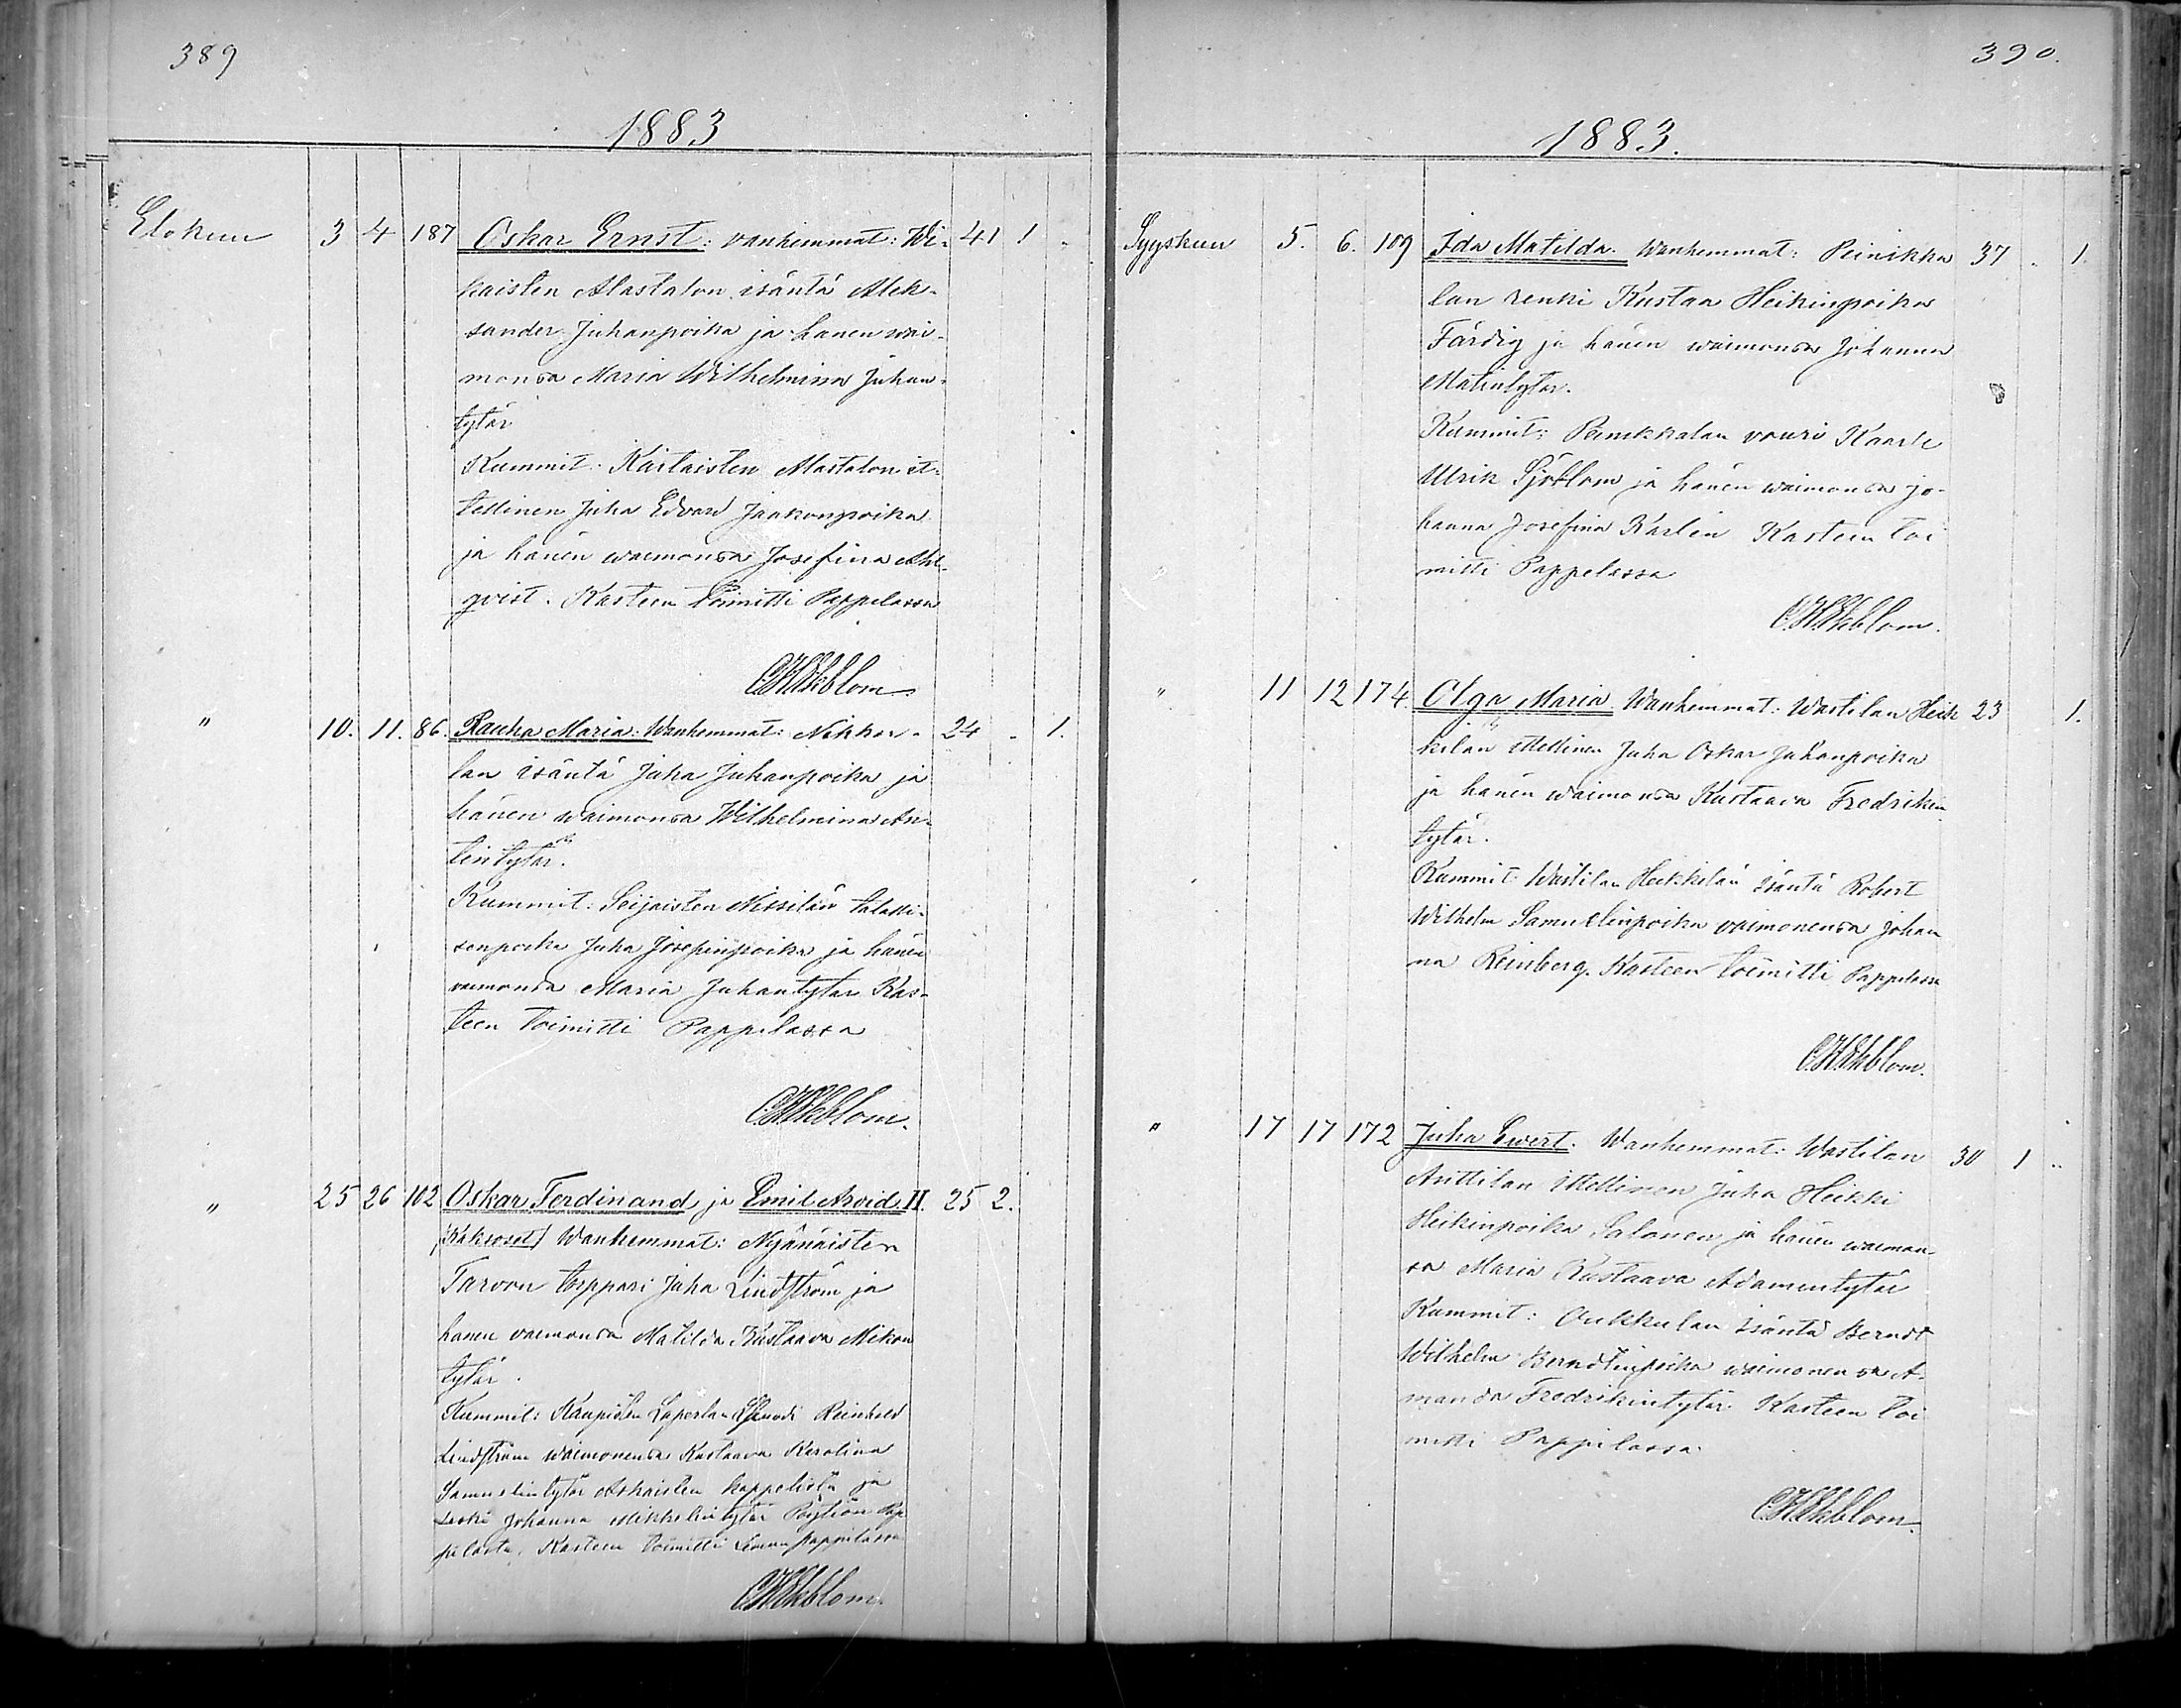 389
1883
Elokuu 3 4 187 Oskar Ernst: vanhemmat: Wi- 41 1 "
kaisten Alastalon isäntä Alek-
sander Juhanpoika ja hänen wai-
monsa Maria Wilhelmina Juhan-
tytär
Kummit: Kärlaisten Alastalon it-
tellinen Juha Edvard Jaakonpoika
ja hänen waimonsa Josefina Ahl-
qvist. Kasteen toimitti Pappilassa
CHEkblom
" 10. 11. 86. Rauha Maria: Wanhemmat: Nikko- 24 " 1.
lan isäntä Juha Juhanpoika ja
hänen waimonsa Wilhelmina An-
tintytär.
Kummit: Seijaisten Nissilän talolli-
senpoika Juha Josepinpoika ja hänen
vaimonsa Maria Juhantytär Kas-
teen toimitti Pappilassa
CHEkblom.
" 25 26 102 Oskar Ferdinand ja Emil Arvid II. 25 2.
(Kaksoset) Wanhemmat: Nyänäisten
Tarvon torppari Juha Lindström ja
hänen vaimonsa Matilda Kustaava Mikon
tytär.
Kummit: Reinhold
Lindström waimonensa Kustaava Karolina
Samuelintytär Askaisten kappelista ja
Leski Johanna Mikkelintytär Pöytiön Pap-
pilasta. Kasteen toimitti Lemun pappilassa
CHEkblom.
390.
1883.
Syyskuu 5. 6. 109 Ida Matilda. Wanhemmat: Peinikka 37 " 1.
lan renki Kustaa Heikinpoika
Färdig ja hänen waimonsa Johanna
Matintytär.
Kummit: Peinikkalan vouri Kaarle
Ulrik Sjöblom ja hänen waimonsa Jo-
hanna Josefina Karlin Kasteen toi
mitti Pappelassa
CHEkblom.
" 11 12 174 Olga Maria. Wanhemmat: Wastilan Heik 23 1.
kilän ittellinen Juha Oskar Juhanpoika
ja hänen waimonsa Kustaava Fredrikin
tytär.
Kummit: Wastilan Heikkilän isäntä Robert
Wilhelm Samuelinpoika vaimonensa Johan
na Reinberg. Kasteen toimitti Pappilassa
CHEkblom.
" 17 17 172 Juha Ewert. Wanhemmat: Wastilan 30 1 "
Anttilan ittellinen Juha Heikki
Heikinpoika Salonen ja hänen waimon-
sa Maria Kustaava Adamintytär
Kummit: Oukkulan isäntä Berndt
Wilhelm Berndtinpoika waimonensa A-
manda Fredrikintytär Kasteen toi
mitti Pappilassa.
CHEkblom.